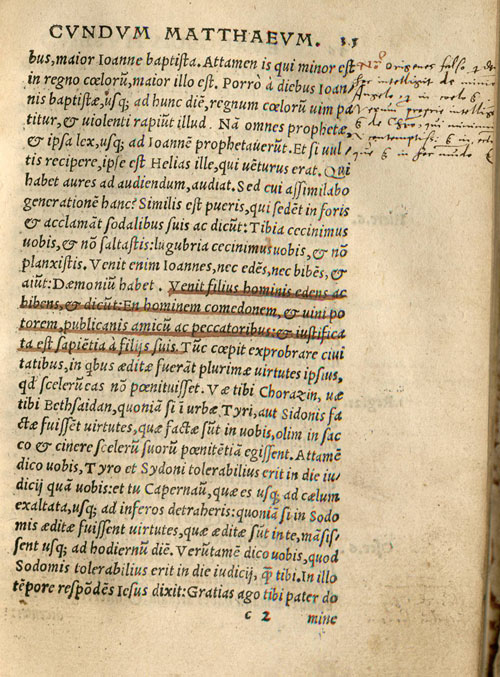 CVNDVM MATTHAEVM. 33
bus, maior Ioanne baptista. Attamen is qui minor est
in regno cœlorũ, maior illo est. Porrò à diebus Ioan/
nis baptistæ, usq; ad hunc diẽ, regnum cœlorũ uim pa
titur, & uiolenti rapiũt illud. Nã omnes prophetæ,
& ipsa lex, usq; ad Ioannẽ prophetauerũt. Et si uul/
tis recipere, ipse est Helias ille, qui uẽturus erat. Qui
habet aures ad audiendum, audiat. Sed cui assimilabo
generationẽ hanc? Similis est pueris, qui sedẽt in foris
& acclamãt sodalibus suis ac dicũt: Tibia cecinimus
uobis, & nõ saltastis: lugubria cecinimus uobis, & nõ
planxistis. Venit enim Ioannes, nec edẽs, nec bibẽs, &
aiũt: Dæmoniũ habet. Venit filius hominis edens ac
bibens, & dicũt: En hominem comedonem, & uini po
torem, publicanis amicũ ac peccatoribus: & iustifica
ta est sapiẽtia à filijs suis. Tũc cœpit exprobrare ciui
tatibus, in qbus æditæ fuerãt plurimæ uirtutes ipsius,
qd scelerũ eas nõ pœnituisset. Væ tibi Chorazin, uæ
tibi Bethsaidan, quoniã si i urbæ, Tyri, aut Sidonis fa
ctæ fuissẽt uirtutes, quæ factæ sũt in uobis, olim in sac
co & cinere scelerũ suorũ pœnitẽtiã egissent. Attamẽ
dico uobis, Tyro et Sydoni tolerabilius erit in die iu/
dicij quã uobis: et tu Capernaũ, quæ es usq; ad cælum
exaltata, usq; ad inferos detraheris: quoniã si in Sodo
mis æditæ fuissent uirtutes, quæ æditæ sũt in te, mãsis/
sent usq; ad hodiernũ diẽ. Verũtamẽ dico uobis, quod
Sodomis tolerabilius erit in die iudicij, q̃ tibi. In illo
tẽpore respõdẽs Iesus dixit: Gratias ago tibi pater do
c 2 mine
Origenes falso
intelligit de
Angelo in celo